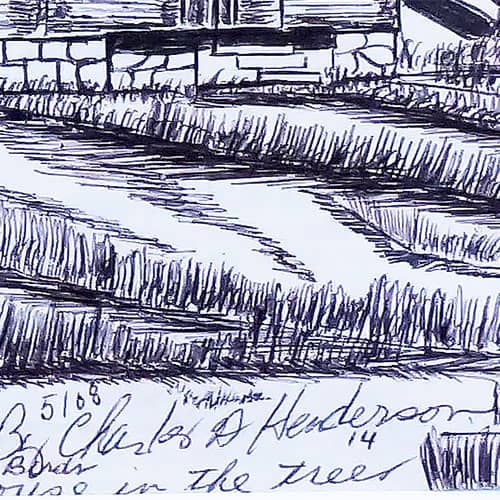 5/08
By Charles D Henderson
14
ouse in the trees